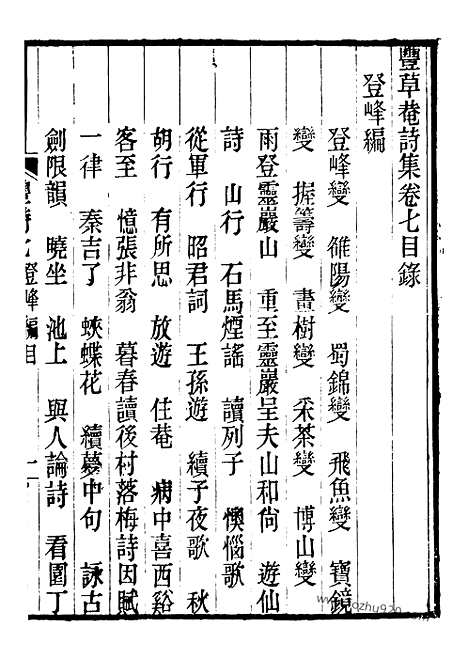 豐草菴詩集卷七目錄
登峰編
登峰變 雒陽變 蜀錦變 飛魚變 寶鏡
變 握籌變 畫樹變 采茶變 博山變
雨登靈巖山 重至靈巖呈夫山和尙 遊仙
詩 山行 石馬煙謠 讀列子 懊惱歌
從軍行 昭君詞 王孫遊 續子夜歌 秋
胡行 有所思 放遊 住菴 病中喜西谿
客至 憶張非翁 暮春讀後村落梅詩因賦
一律 秦吉了 蛺蝶花 續夢中句 詠古
劍限韻 曉坐 池上 與人論詩 看園丁
登峰編目 一